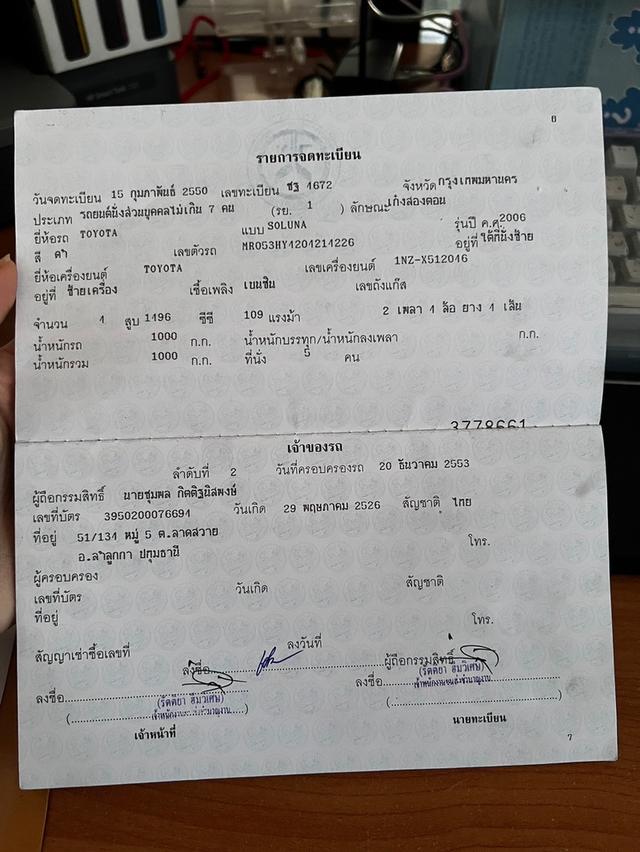 6
รายการจดทะเบียน
วันจดทะเบียน 15 กุมภาพันธ์ 2550 เลขทะเบียน ชฐ 4672 จังหวัด กรุงเทพมหานคร
ประเภท รถยนต์นั่งส่วนบุคคลไม่เกิน 7 คน (รย. 1 ) ลักษณะ เก๋งสองตอน
ยี่ห้อรถ TOYOTA แบบ SOLUNA รุ่นปี ค.ศ. 2006
สี ดำ เลขตัวรถ MR053HY4204214226 อยู่ที่ ใต้ที่นั่งซ้าย
ยี่ห้อเครื่องยนต์ TOYOTA เลขเครื่องยนต์ 1NZ-X512046
อยู่ที่ ซ้ายเครื่อง เชื้อเพลิง เบนซิน เลขถังแก๊ส
จำนวน 4 สูบ 1496 ซีซี 109 แรงม้า 2 เพลา 4 ล้อ ยาง 4 เส้น
น้ำหนักรถ 1000 ก.ก. น้ำหนักบรรทุก/น้ำหนักลงเพลา ก.ก.
น้ำหนักรวม 1000 ก.ก. ที่นั่ง 5 คน
3778661
เจ้าของรถ
ลำดับที่ 2 วันที่ครอบครองรถ 20 ธันวาคม 2553
ผู้ถือกรรมสิทธิ์ นายชุมพล กิตติฐนิสพงษ์
เลขที่บัตร 3950200076694 วันเกิด 29 พฤษภาคม 2526 สัญชาติ ไทย
ที่อยู่ 51/134 หมู่ 5 ต.ลาดสวาย โทร.
อ.ลำลูกกา ปทุมธานี
ผู้ครอบครอง
เลขที่บัตร วันเกิด สัญชาติ
ที่อยู่ โทร.
สัญญาเช่าซื้อเลขที่ ลงวันที่
ลงชื่อ ผู้ถือกรรมสิทธิ์
ลงชื่อ ลงชื่อ
(รัตติยา ฮิมวิเศษ) (รัตติยา ฮิมวิเศษ)
เจ้าพนักงานขนส่งชำนาญงาน เจ้าพนักงานขนส่งชำนาญงาน
เจ้าหน้าที่ นายทะเบียน
7